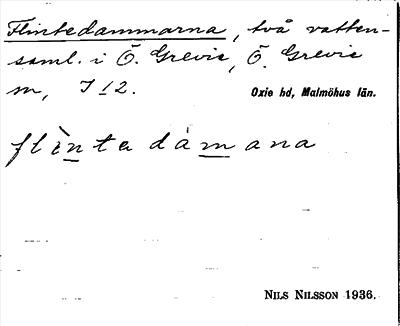 Flintedammarna, två vatten-
saml. i Ö. Grevie, Ö. Grevie
m, I 12.
Oxie hd, Malmöhus län.
flìnta dámana
NILS NILSSON 1936.